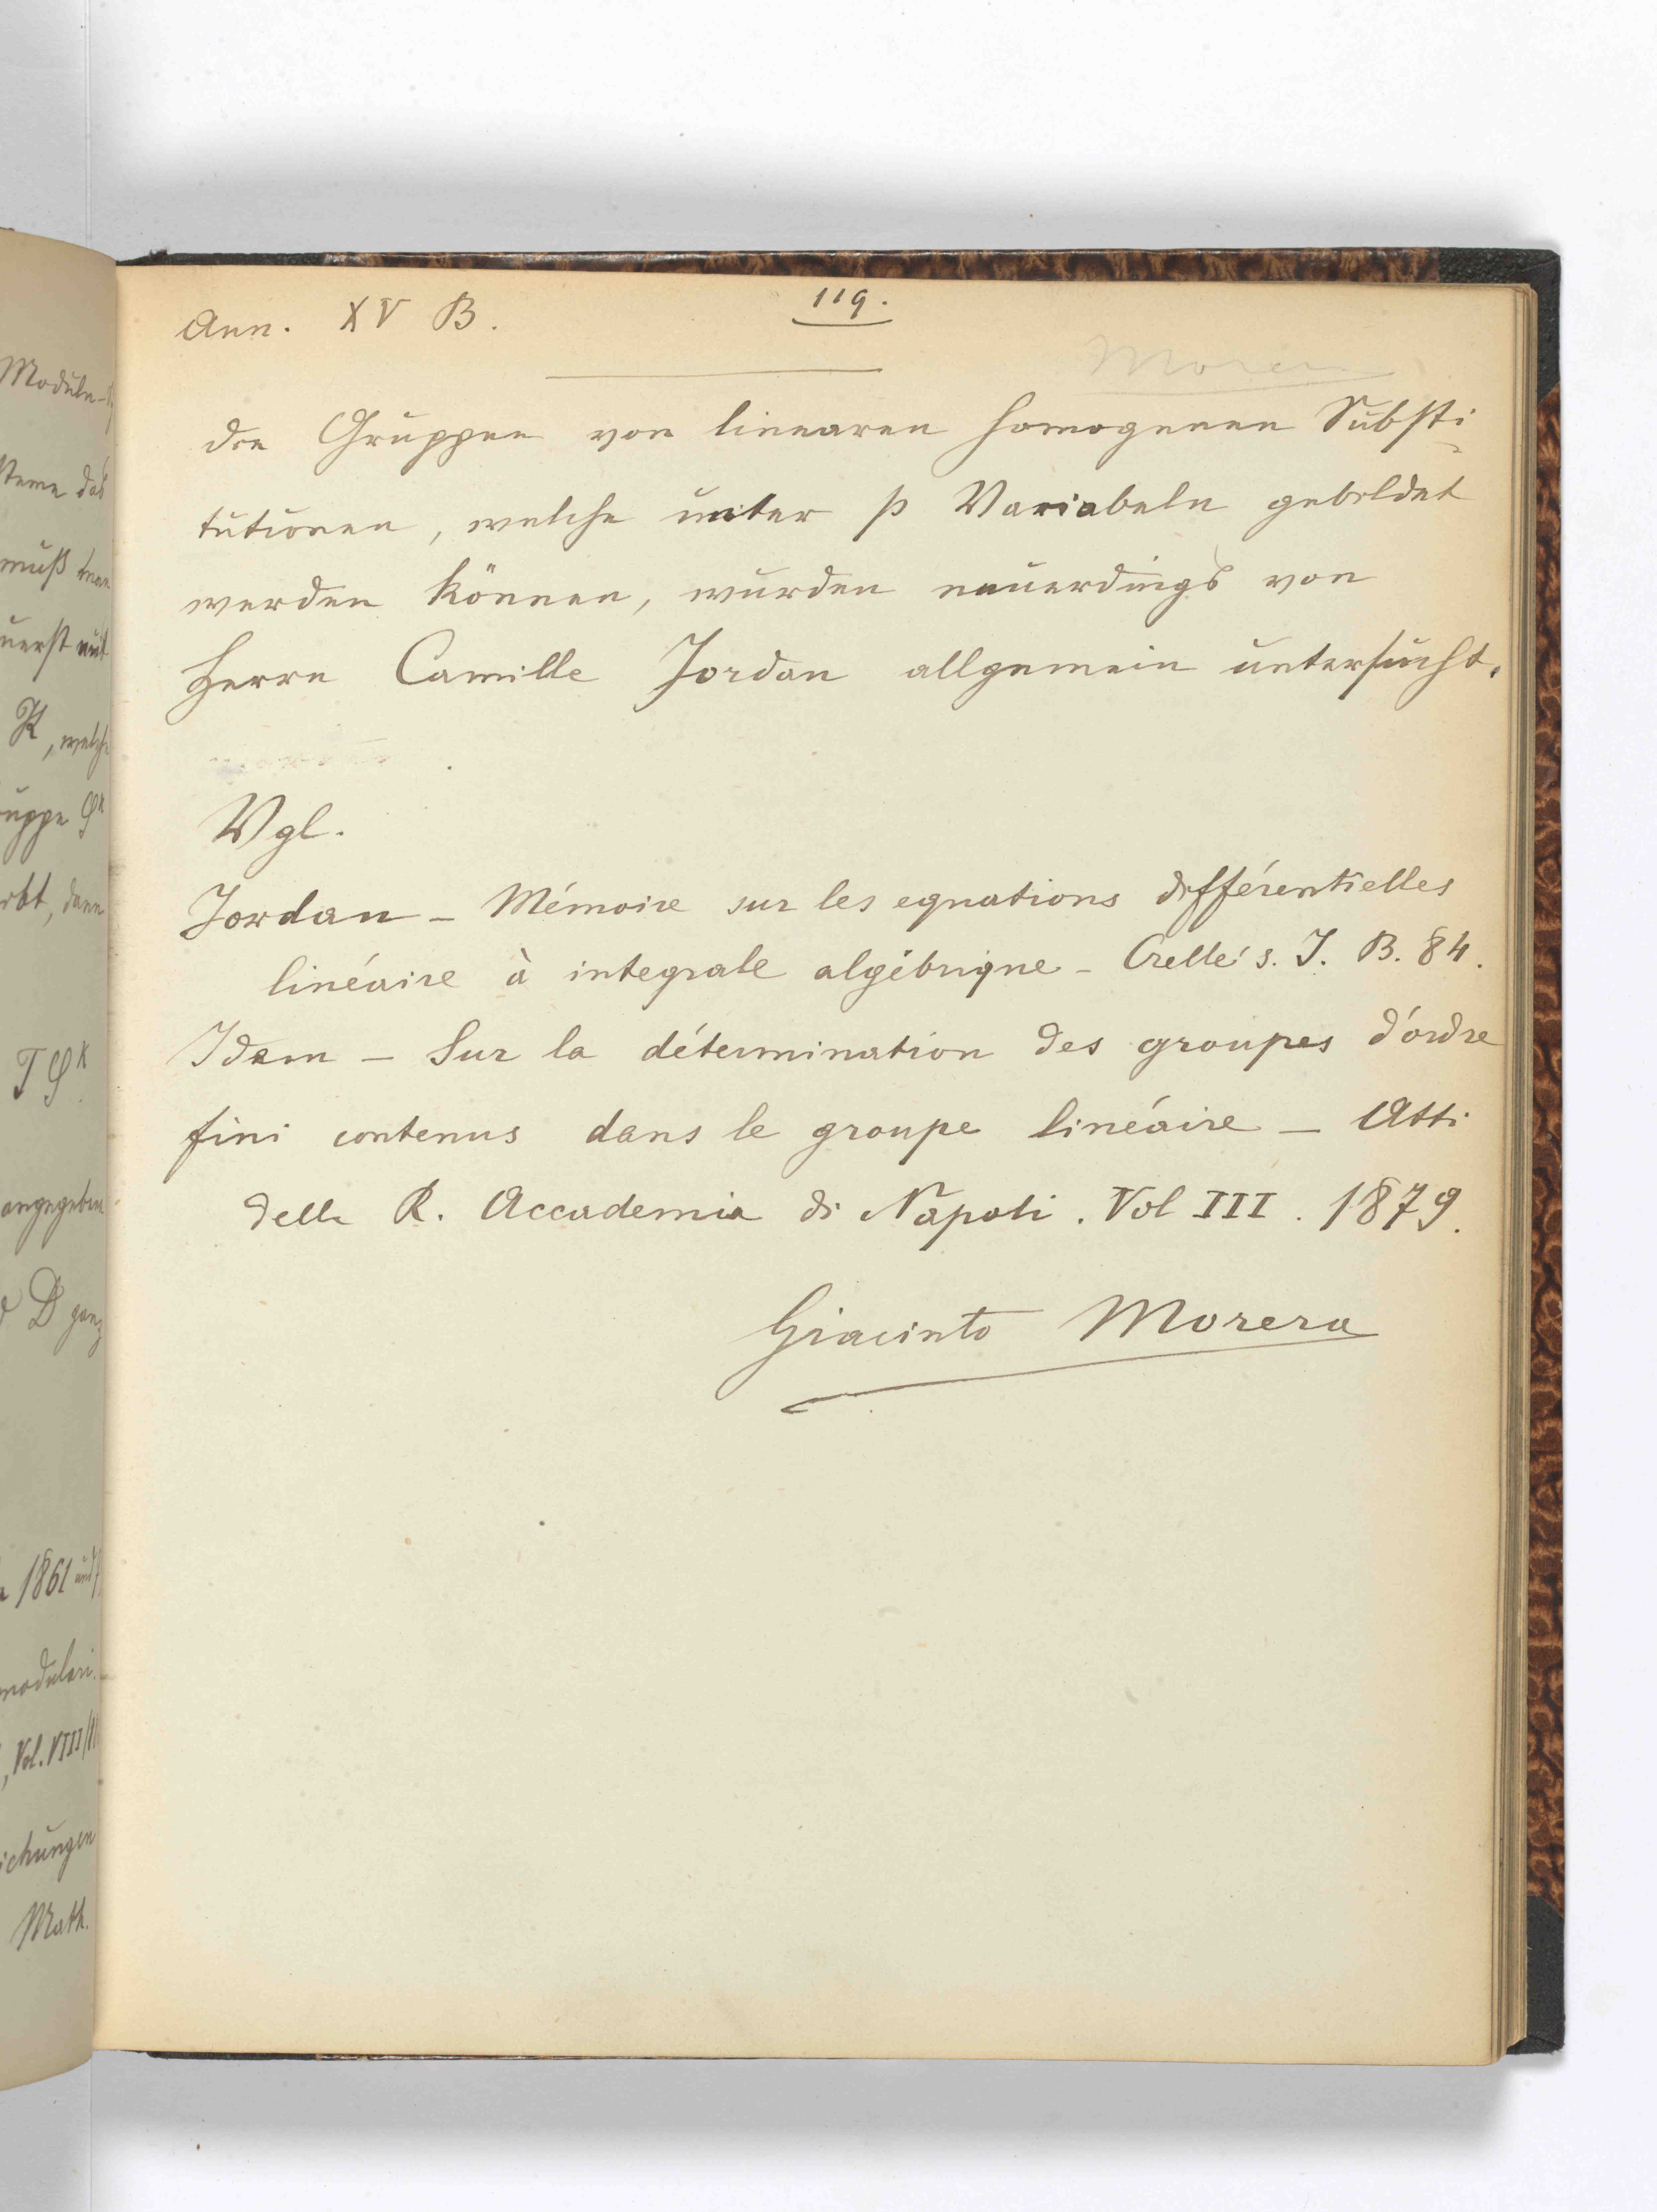 Moduln-
steme das
muß man
uerst mit
K, welche
uppe S^k
T S^k.
angegeben
D ganz
1861 und
modulari.
, Vol. VIII
ichungen
Math.
Ann. XV B.
119.
Morera
die Gruppen von linearen homogenen Substi-
tutionen, welche unter p Variabeln gebildet
werden können, wurden neuerdings von
Herrn Camille Jordan allgemein untersucht.
Vgl.
Jordan – Mémoire sur les equations différentielles
linéaire à integrale algébrique – Crelle's. J. B. 84.
Idem – Sur la détermination des groupes d'ordre
fini contenus dans le groupe linéaire – Atti
della R. Accademia di Napoli. Vol III. 1879.
Giacinto Morera